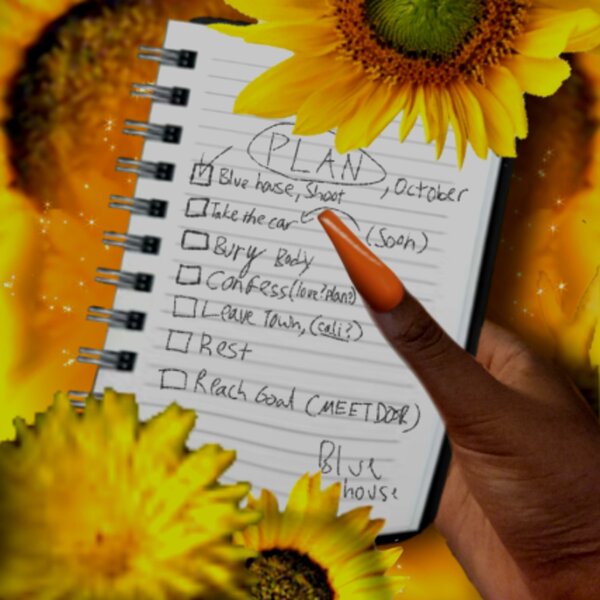 PLAN, October
Blue house, Shoot
Take the car (Soon)
Bury Body
Confess (love? Plan?)
Leave Town, (cali?)
Rest
Reach Goal (MEET DOER)
Blue
house